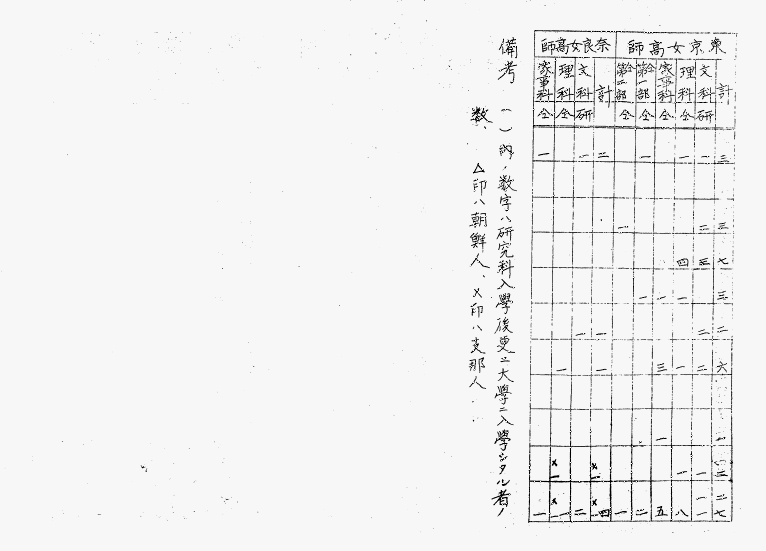 東京女高師
計 三 三 七 三 二 六 一 二 二七
文科研 一 二 三 二 二 一 一一
理科仝 一 四 一 一 一 八
家事科仝 一 三 一 五
仝第一部仝 一 一 二
仝第二部仝 一 一
奈良女高師
計 二 一 一 ×一 ×一四
文科研 一 一 二
理科仝 一 ×一 ×一一
家事科仝 一 一
備考 ( )内ノ数字ハ研究科入學後更ニ大學ニ入學シタル者ノ
数、 △印ハ朝鮮人、×印ハ支那人